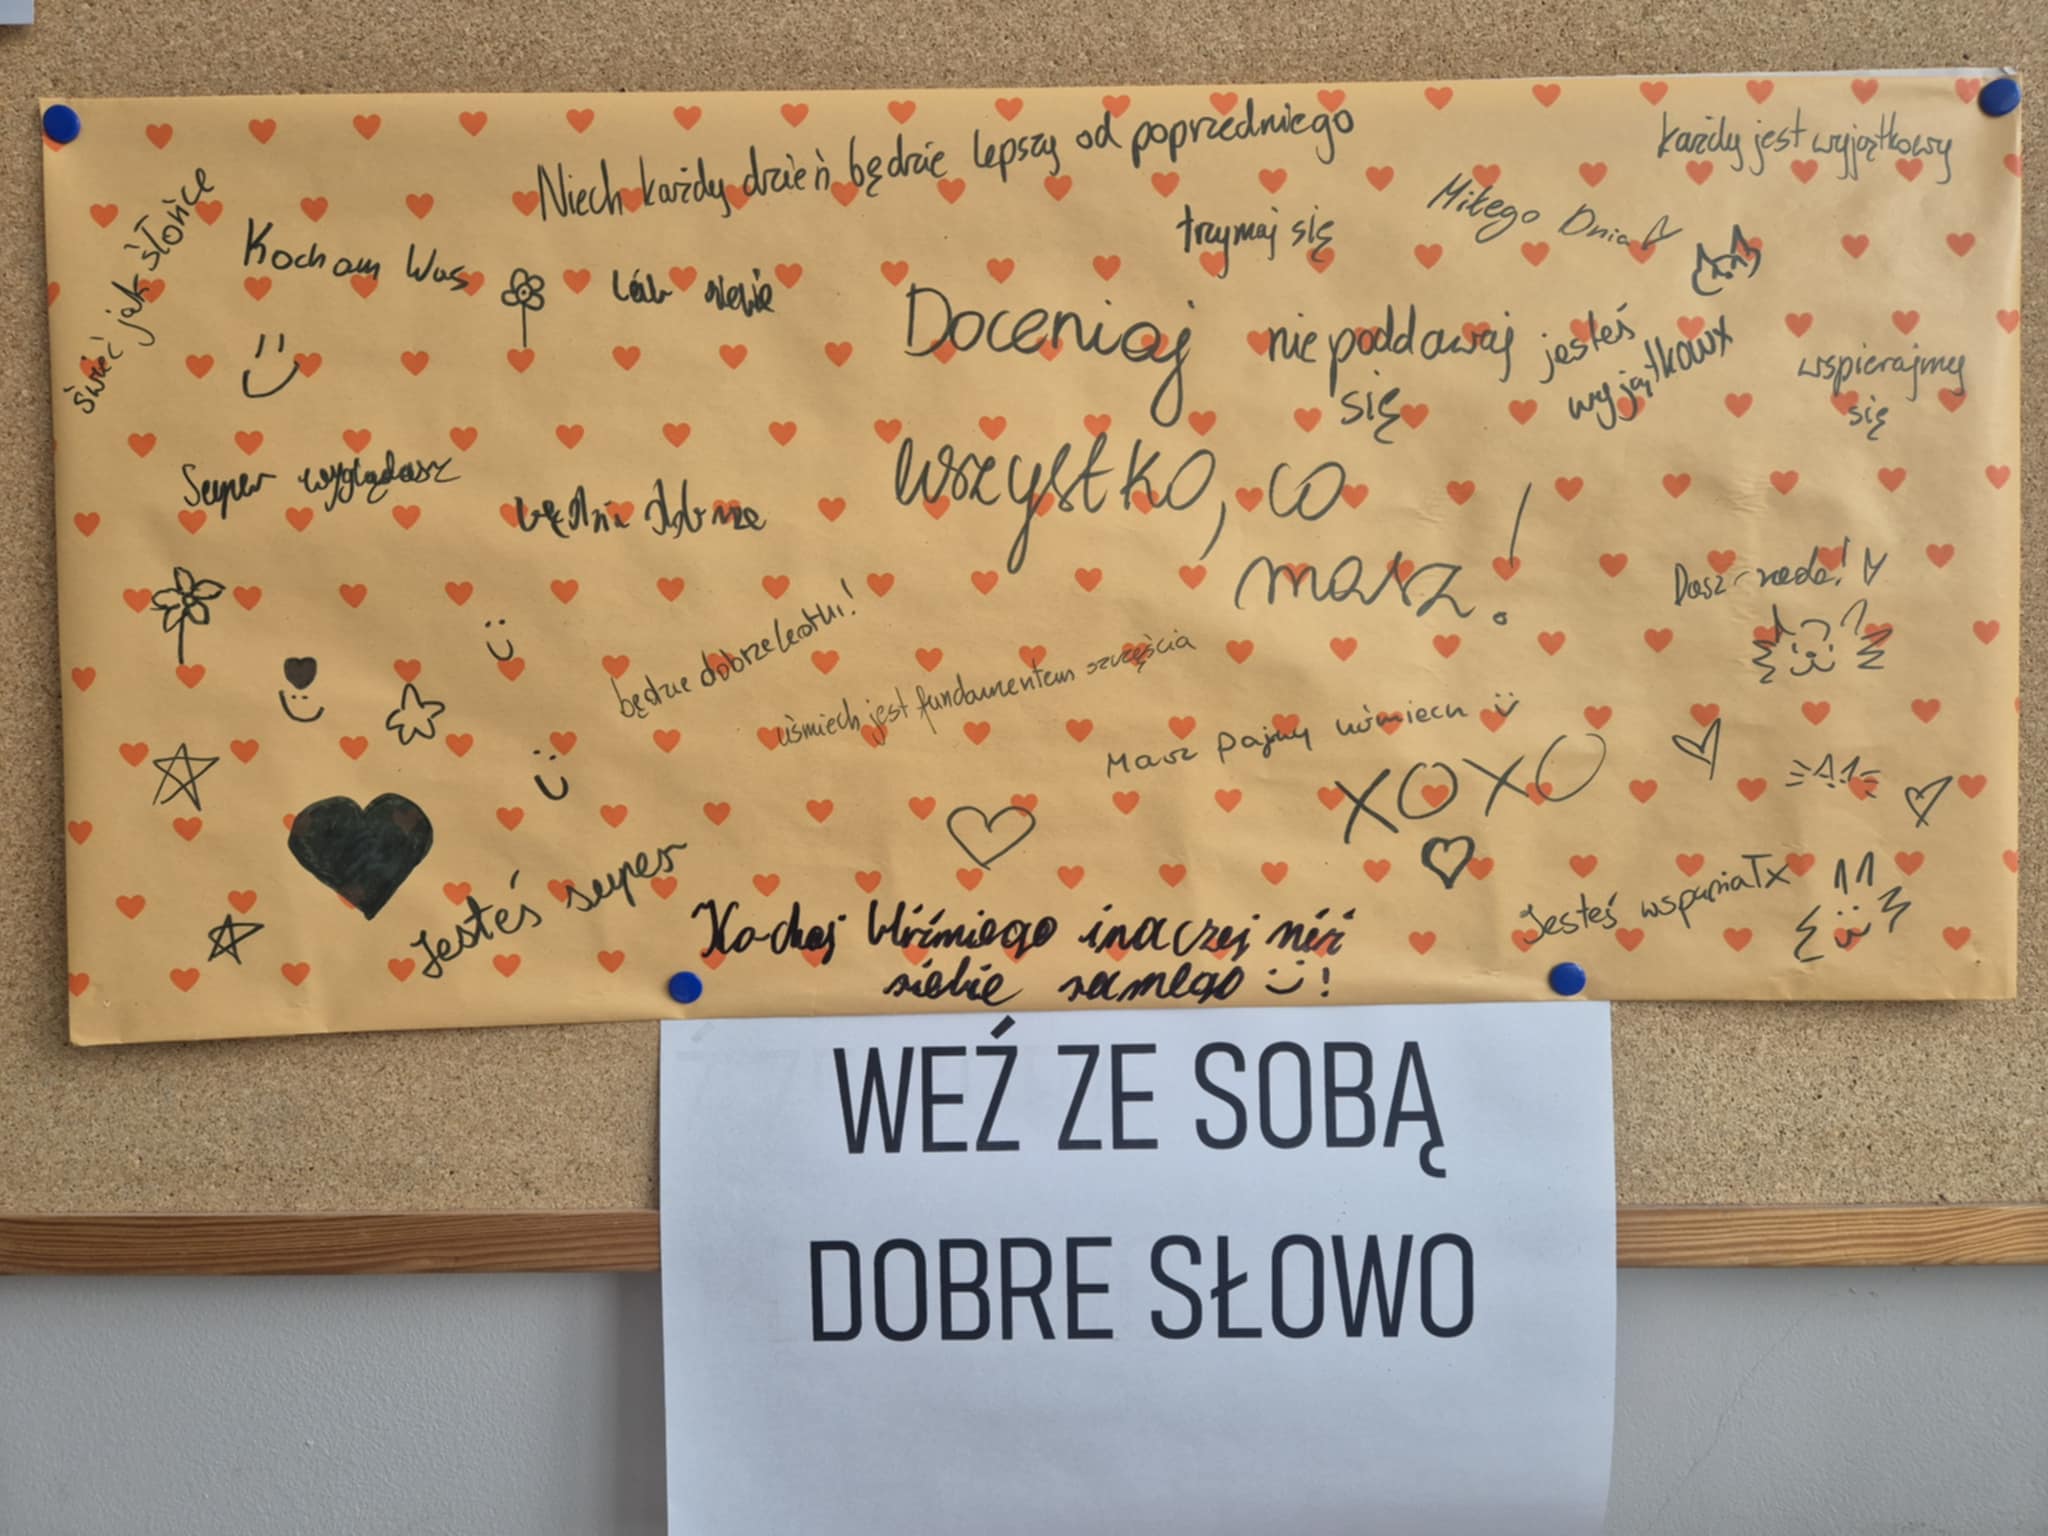 Niech każdy dzień będzie lepszy od poprzedniego
każdy jest wyjątkowy
Miłego Dnia
trzymaj się
świeć jak słońce
Kocham Was
lub siebie
Doceniaj
wszystko, co
masz!
nie poddawaj
się
jesteś
wyjątkowx
wspierajmy
się
Super wyglądasz
będzie dobrze
Dasz radę!
będzie dobrze kotki!
uśmiech jest fundamentem szczęścia
Masz fajny uśmiech
XOXO
Jesteś super
Jesteś wspaniałx
Kochaj bliźniego inaczej niż
siebie samego !
WEŹ ZE SOBĄ
DOBRE SŁOWO